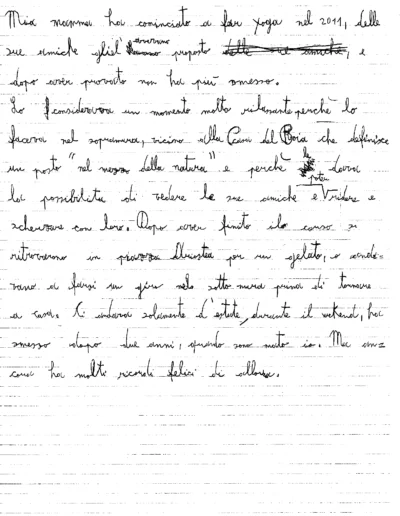 Mia mamma ha cominciato a far yoga nel 2011, delle
sue amiche gliel' avevano proposto, e
dopo aver provato non ha più smesso.
Lo considerava un momento molto rilassante perchè lo
faceva nel sopramura, vicino alla Casa del Boia che definisce
un posto "nel mezzo della natura" e perchè le dava
la possibilità di vedere le sue amiche e poter ridere e
scherzare con loro. Dopo aver finito il corso si
ritrovavano in piazza per un gelato, o anda=
vano a farsi un giro nel sotto mura prima di tornare
a casa. Ci andava solamente d'estate, durante il weekend, ha
smesso dopo due anni, quando sono nato io. Ma an=
cora ha molti ricordi felici di allora.